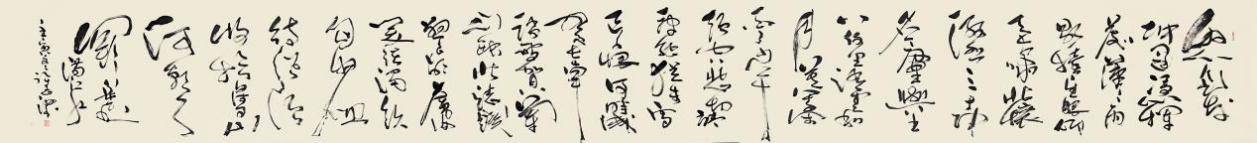 怒髮衝
冠憑欄處
瀟瀟雨
歇抬望眼仰
天長嘯壯懷
激烈三十
功名塵與土
八千里路雲和
月莫等閒
白了少年
頭空悲切
靖康恥猶未雪
臣子恨何時滅
駕長車
踏破賀蘭
山缺壯志飢餐
胡虜肉
笑談渴飲
匈奴血
待從頭
收拾舊山
河朝天
闕岳飛
滿江紅
壬寅